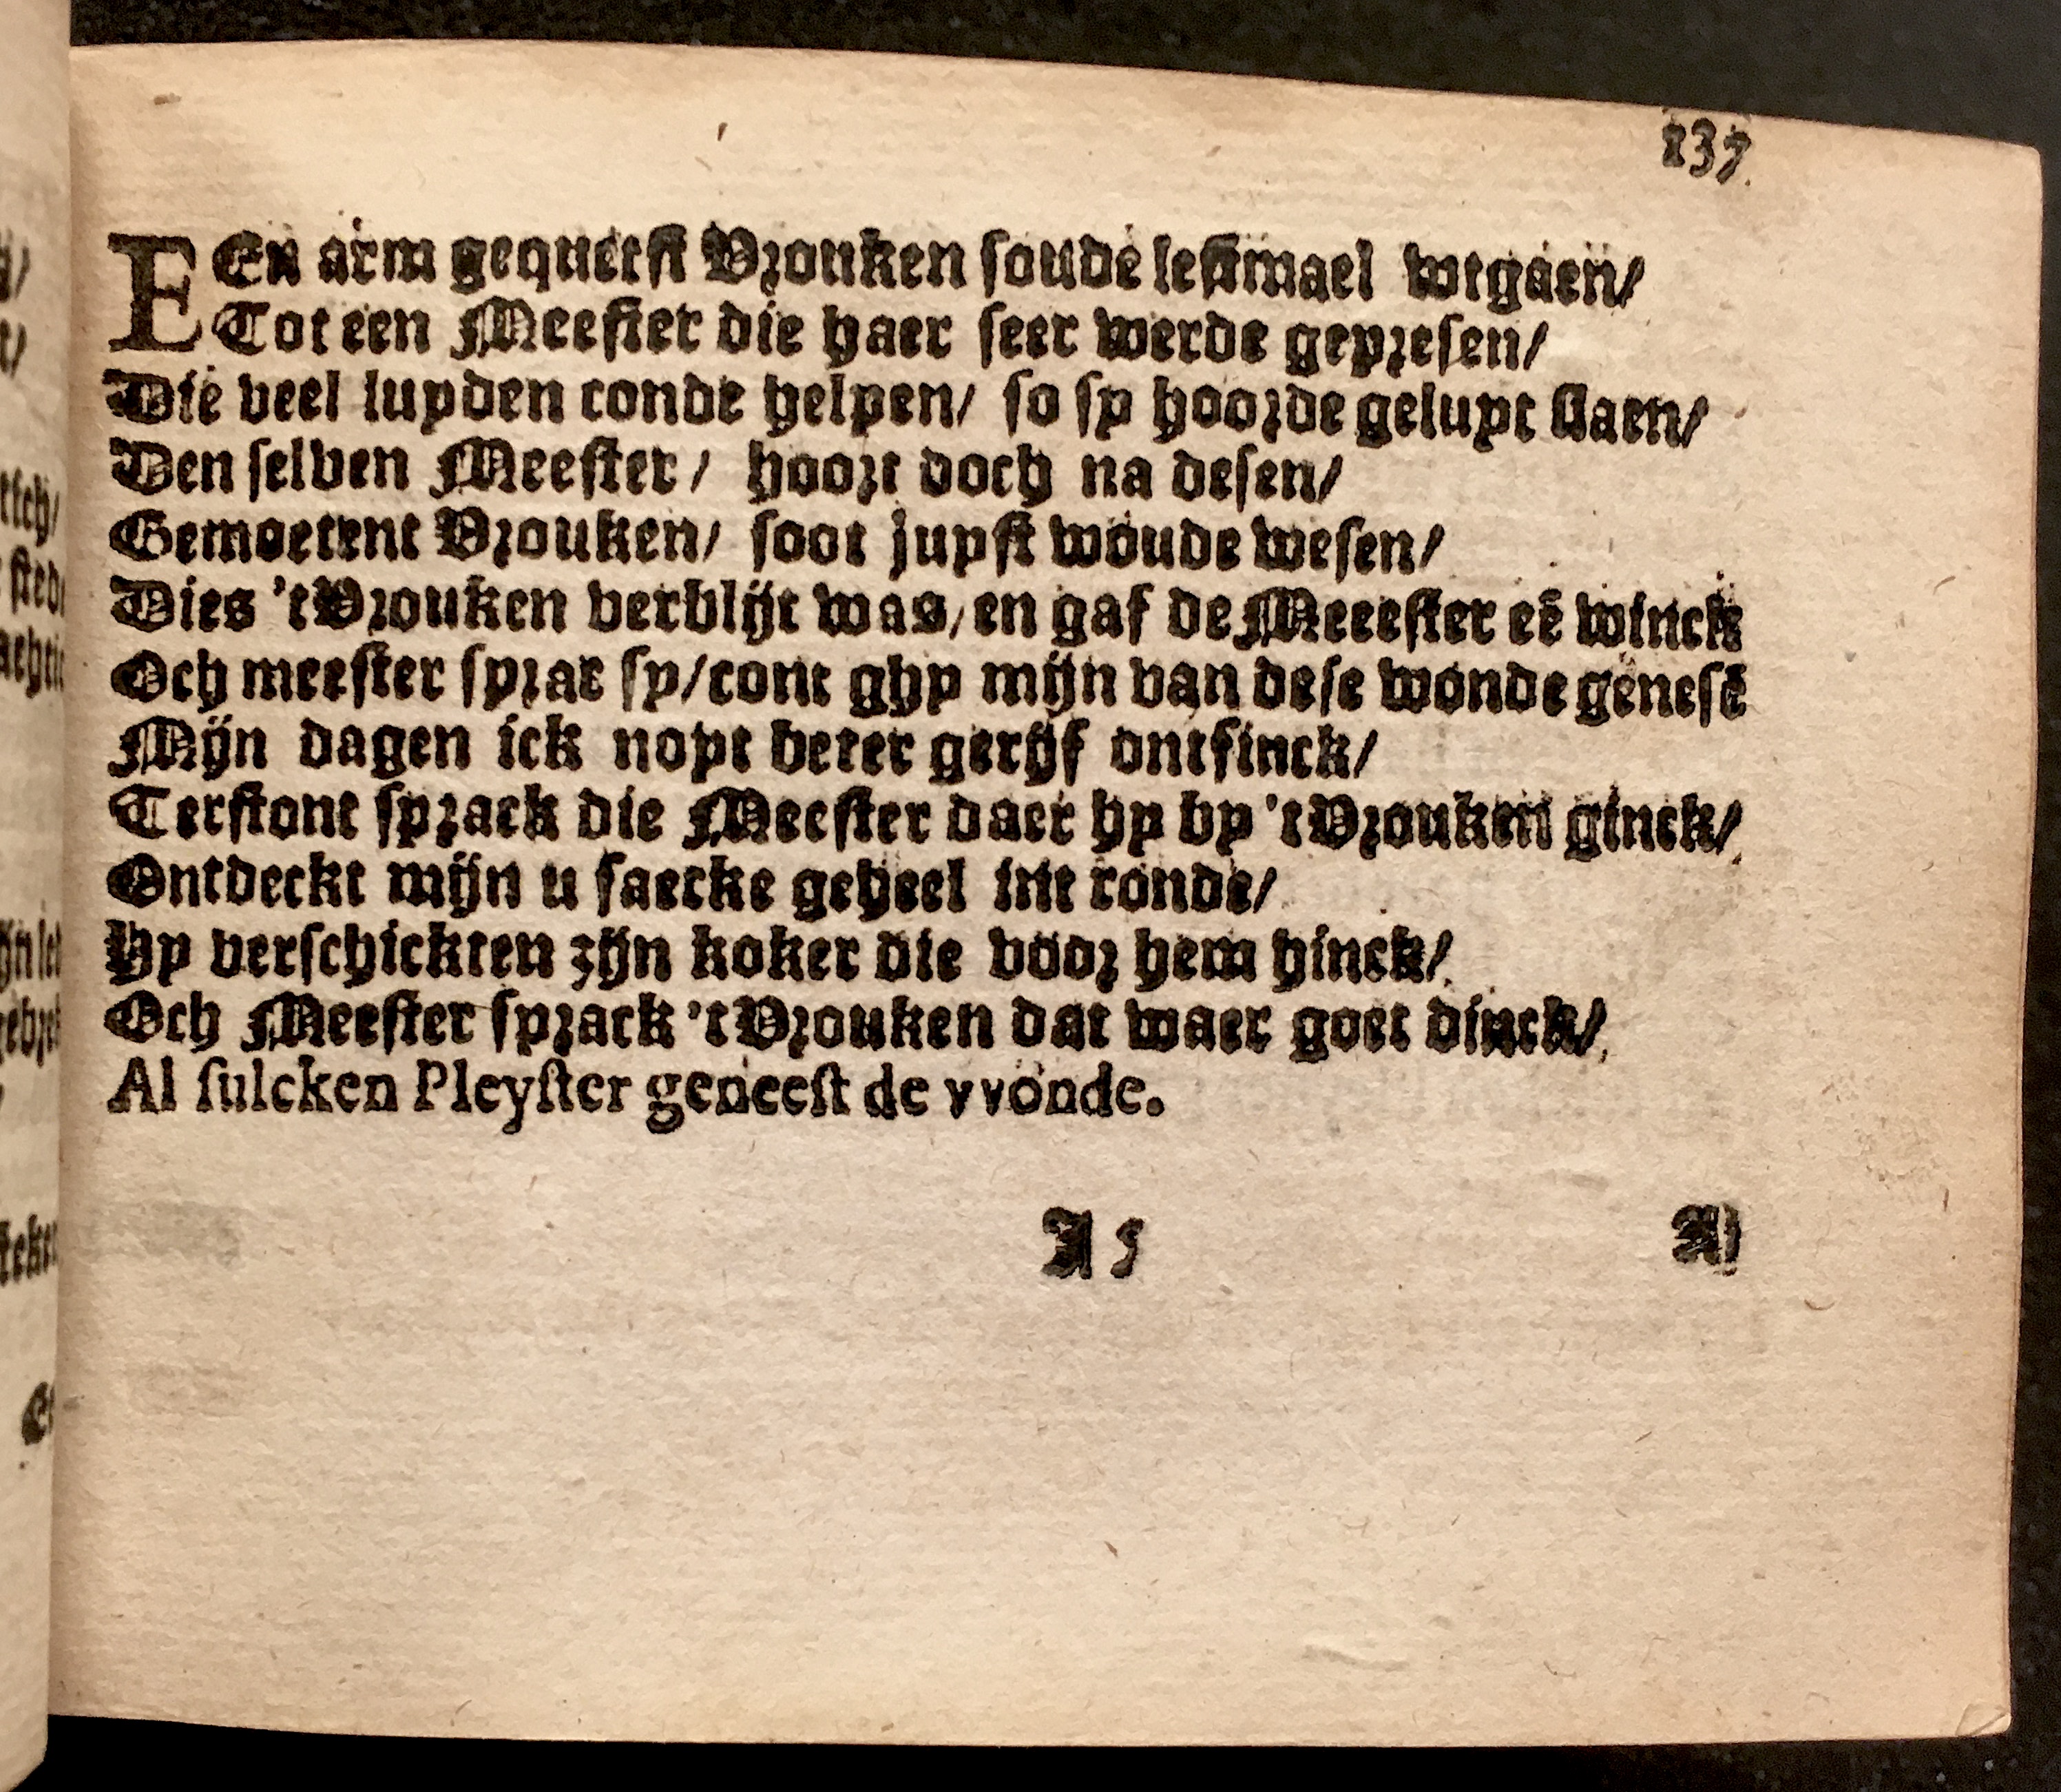 137.
EEn arm gequetst Vrouken soude lestmael wtgaen/
Tot een Meester die haer seer werde gepresen/
Die veel luyden conde helpen/ so sy hoorde geluyt slaen/
Den selven Meester/ hoort doch na desen/
Gemoetent Vrouken/ soot juyst woude wesen/
Dies 't Vrouken verblijt was/ en gaf de Meeester eē winck
Och meester sprac sy/ cont ghy mijn van dese wonde genesē
Mijn dagen ick noyt beter gerijf ontfinck/
Terstont sprack die Meester daer hy by 't Vrouken ginck/
Ontdeckt mijn u saecke geheel int ronde/
Hy verschickten zijn koker die voor hem hinck/
Och Meester sprack 't Vrouken dat waer goet dinck/
Al sulcken Pleyster geneest de vvonde.